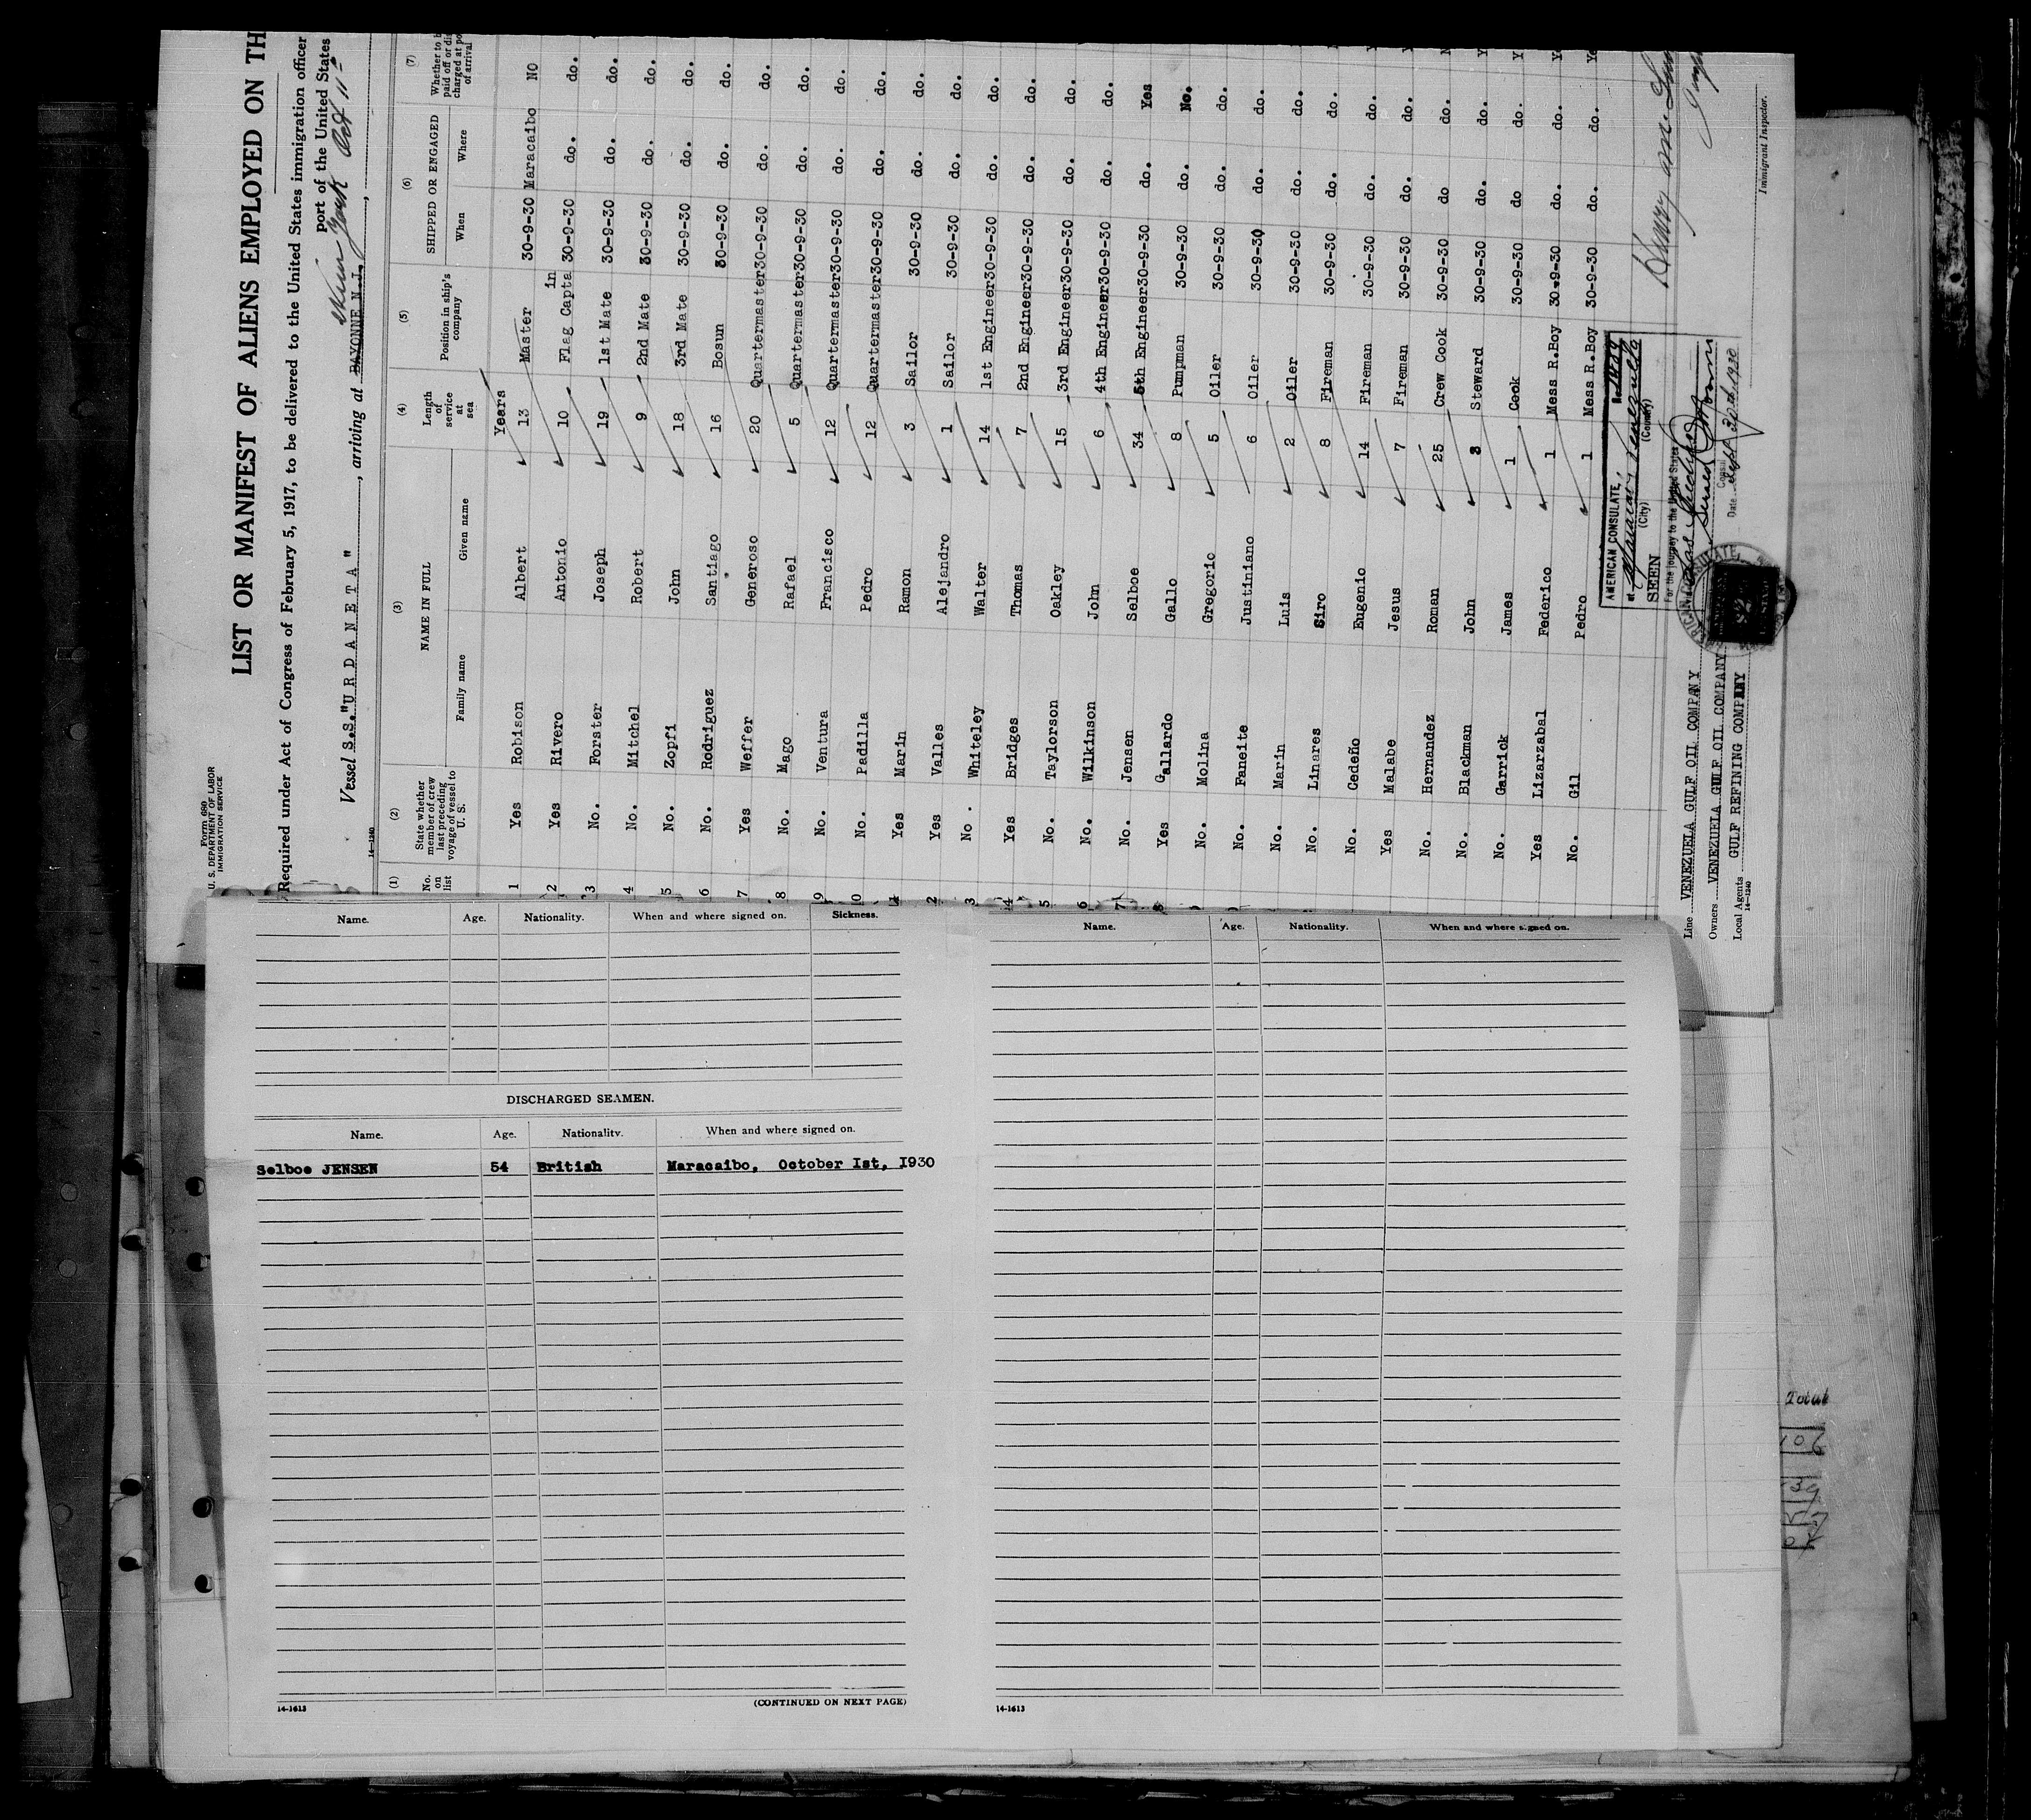 Form 680
U. S. DEPARTMENT OF LABOR
IMMIGRATION SERVICE
LIST OR MANIFEST OF ALIENS EMPLOYED ON TH
Required under Act of Congress of February 5, 1917, to be delivered to the United States immigration officer
port of the United States
Vessel S.S. "URDANETA", arriving at BAYONNE N.J. New York Oct 11
14-1240
(1) (2) (3) (4) (5) (6) (7)
No. on list State whether member of crew last preceding voyage of vessel to U. S. NAME IN FULL Length of service at sea Position in ship's company SHIPPED OR ENGAGED Whether to b paid off or di charged at po of arrival
Family name Given name When Where
Years
1 Yes Robison Albert 13 Master 30-9-30 Maracaibo NO
2 Yes Rivero Antonio 10 Flag Captain 30-9-30 do. do.
3 No. Forster Joseph 19 1st Mate 30-9-30 do. do.
4 No. Mitchel Robert 9 2nd Mate 30-9-30 do. do.
5 No. Zopfi John 18 3rd Mate 30-9-30 do. do.
6 No. Rodriguez Santiago 16 Bosun 30-9-30 do. do.
7 Yes Weffer Generoso 20 Quartermaster 30-9-30 do. do.
8 No. Mago Rafael 5 Quartermaster 30-9-30 do. do.
9 No. Ventura Francisco 12 Quartermaster 30-9-30 do. do.
0 No. Padilla Pedro 12 Quartermaster 30-9-30 do. do.
1 Yes Marin Ramon 3 Sailor 30-9-30 do. do.
2 Yes Valles Alejandro 1 Sailor 30-9-30 do. do.
3 No. Whiteley Walter 14 1st Engineer 30-9-30 do. do.
4 Yes Bridges Thomas 7 2nd Engineer 30-9-30 do. do.
5 No. Taylorson Oakley 15 3rd Engineer 30-9-30 do. do.
6 No. Wilkinson John 6 4th Engineer 30-9-30 do. do.
7 No. Jensen Selboe 34 5th Engineer 30-9-30 do. Yes
8 Yes Gallardo Gallo 8 Pumpman 30-9-30 do. No.
No. Molina Gregorio 5 Oiler 30-9-30 do. do.
No. Faneite Justiniano 6 Oiler 30-9-30 do. do.
No. Marin Luis 2 Oiler 30-9-30 do. do.
No. Linares Siro 8 Fireman 30-9-30 do. do.
No. Cedeño Eugenio 14 Fireman 30-9-30 do. do.
Yes Malabe Jesus 7 Fireman 30-9-30 do. do.
No. Hernandez Roman 25 Crew Cook 30-9-30 do do.
No. Blackman John 3 Steward 30-9-30 do. do.
No. Garrick James 1 Cook 30-9-30 do do.
Yes Lizarzabal Federico 1 Mess R.Boy 30-9-30 do. do.
No. Gil Pedro 1 Mess R.Boy 30-9-30 do. do.
AMERICAN CONSULATE,
at Venezuela
(City) (Country)
SEEN
For the journey to the United States
Consul
Date Sept. 30th, 1930
Line VENEZUELA GULF OIL COMPANY
Owners VENEZUELA GULF OIL COMPANY
Local Agents GULF REFINING COMPANY
14-1240
Immigrant Inspector.
Name. Age. Nationality. When and where signed on. Sickness.
DISCHARGED SEAMEN.
Name. Age. Nationality. When and where signed on.
Selboe JENSEN 54 British Maracaibo, October Ist, I930
14-1613
(CONTINUED ON NEXT PAGE)
Name. Age. Nationality. When and where signed on.
14-1613
Total
106
39